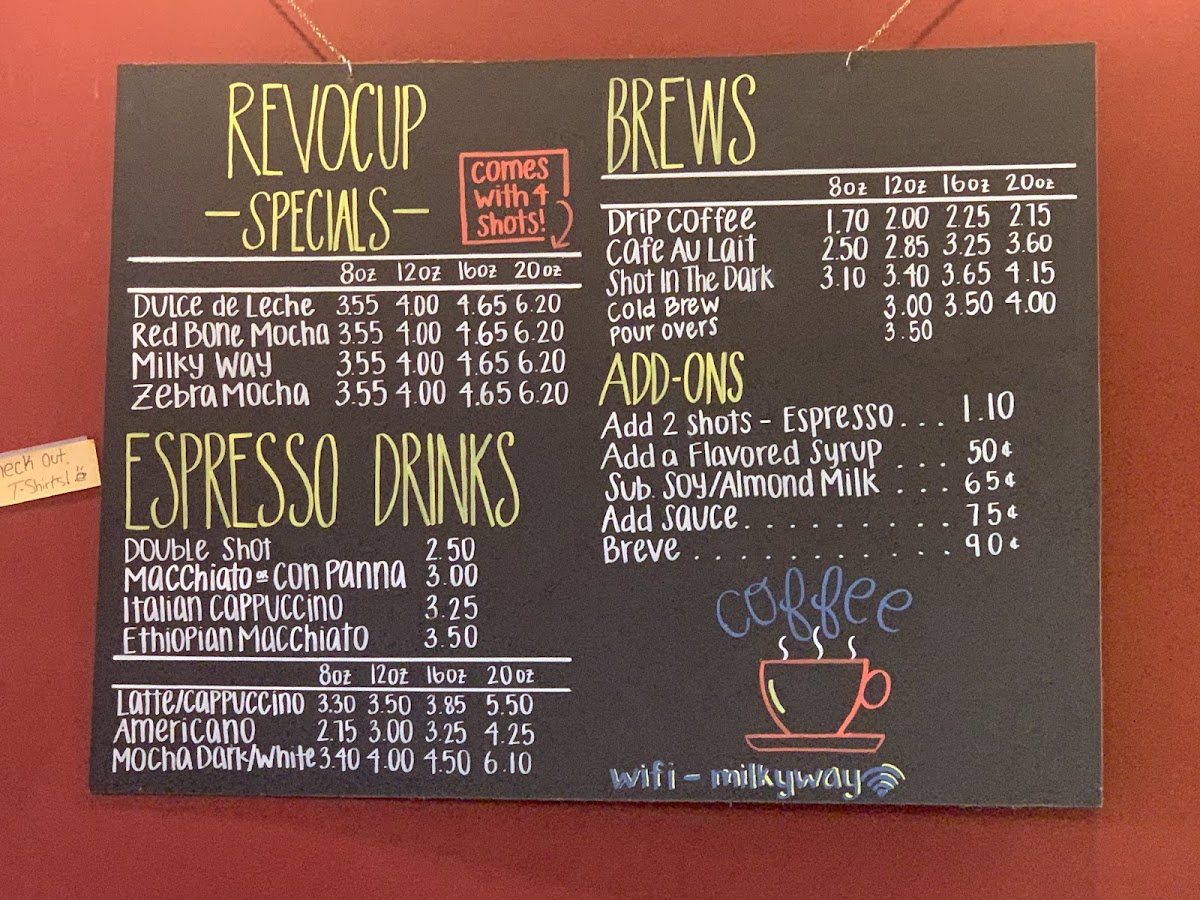 REVOCUP
-SPECIALS-
comes
with 4
shots!
8oz 12oz 16oz 20oz
Dulce de Leche 3.55 4.00 4.65 6.20
Red Bone Mocha 3.55 4.00 4.65 6.20
Milky Way 3.55 4.00 4.65 6.20
Zebra Mocha 3.55 4.00 4.65 6.20
ESPRESSO DRINKS
Double Shot 2.50
Macchiato or Con Panna 3.00
Italian Cappuccino 3.25
Ethiopian Macchiato 3.50
8oz 12oz 16oz 20oz
Latte/Cappuccino 3.30 3.50 3.85 5.50
Americano 2.75 3.00 3.25 4.25
Mocha Dark/White 3.40 4.00 4.50 6.10
BREWS
8oz 12oz 16oz 20oz
Drip Coffee 1.70 2.00 2.25 2.75
Cafe Au Lait 2.50 2.85 3.25 3.60
Shot In The Dark 3.10 3.40 3.65 4.15
Cold Brew 3.00 3.50 4.00
Pour overs 3.50
ADD-ONS
Add 2 shots - Espresso... 1.10
Add a Flavored Syrup ... 50¢
Sub. Soy/Almond Milk ... 65¢
Add sauce.......... 75¢
Breve ............ 90¢
coffee
wifi - milkyway
heck out
T-Shirts!